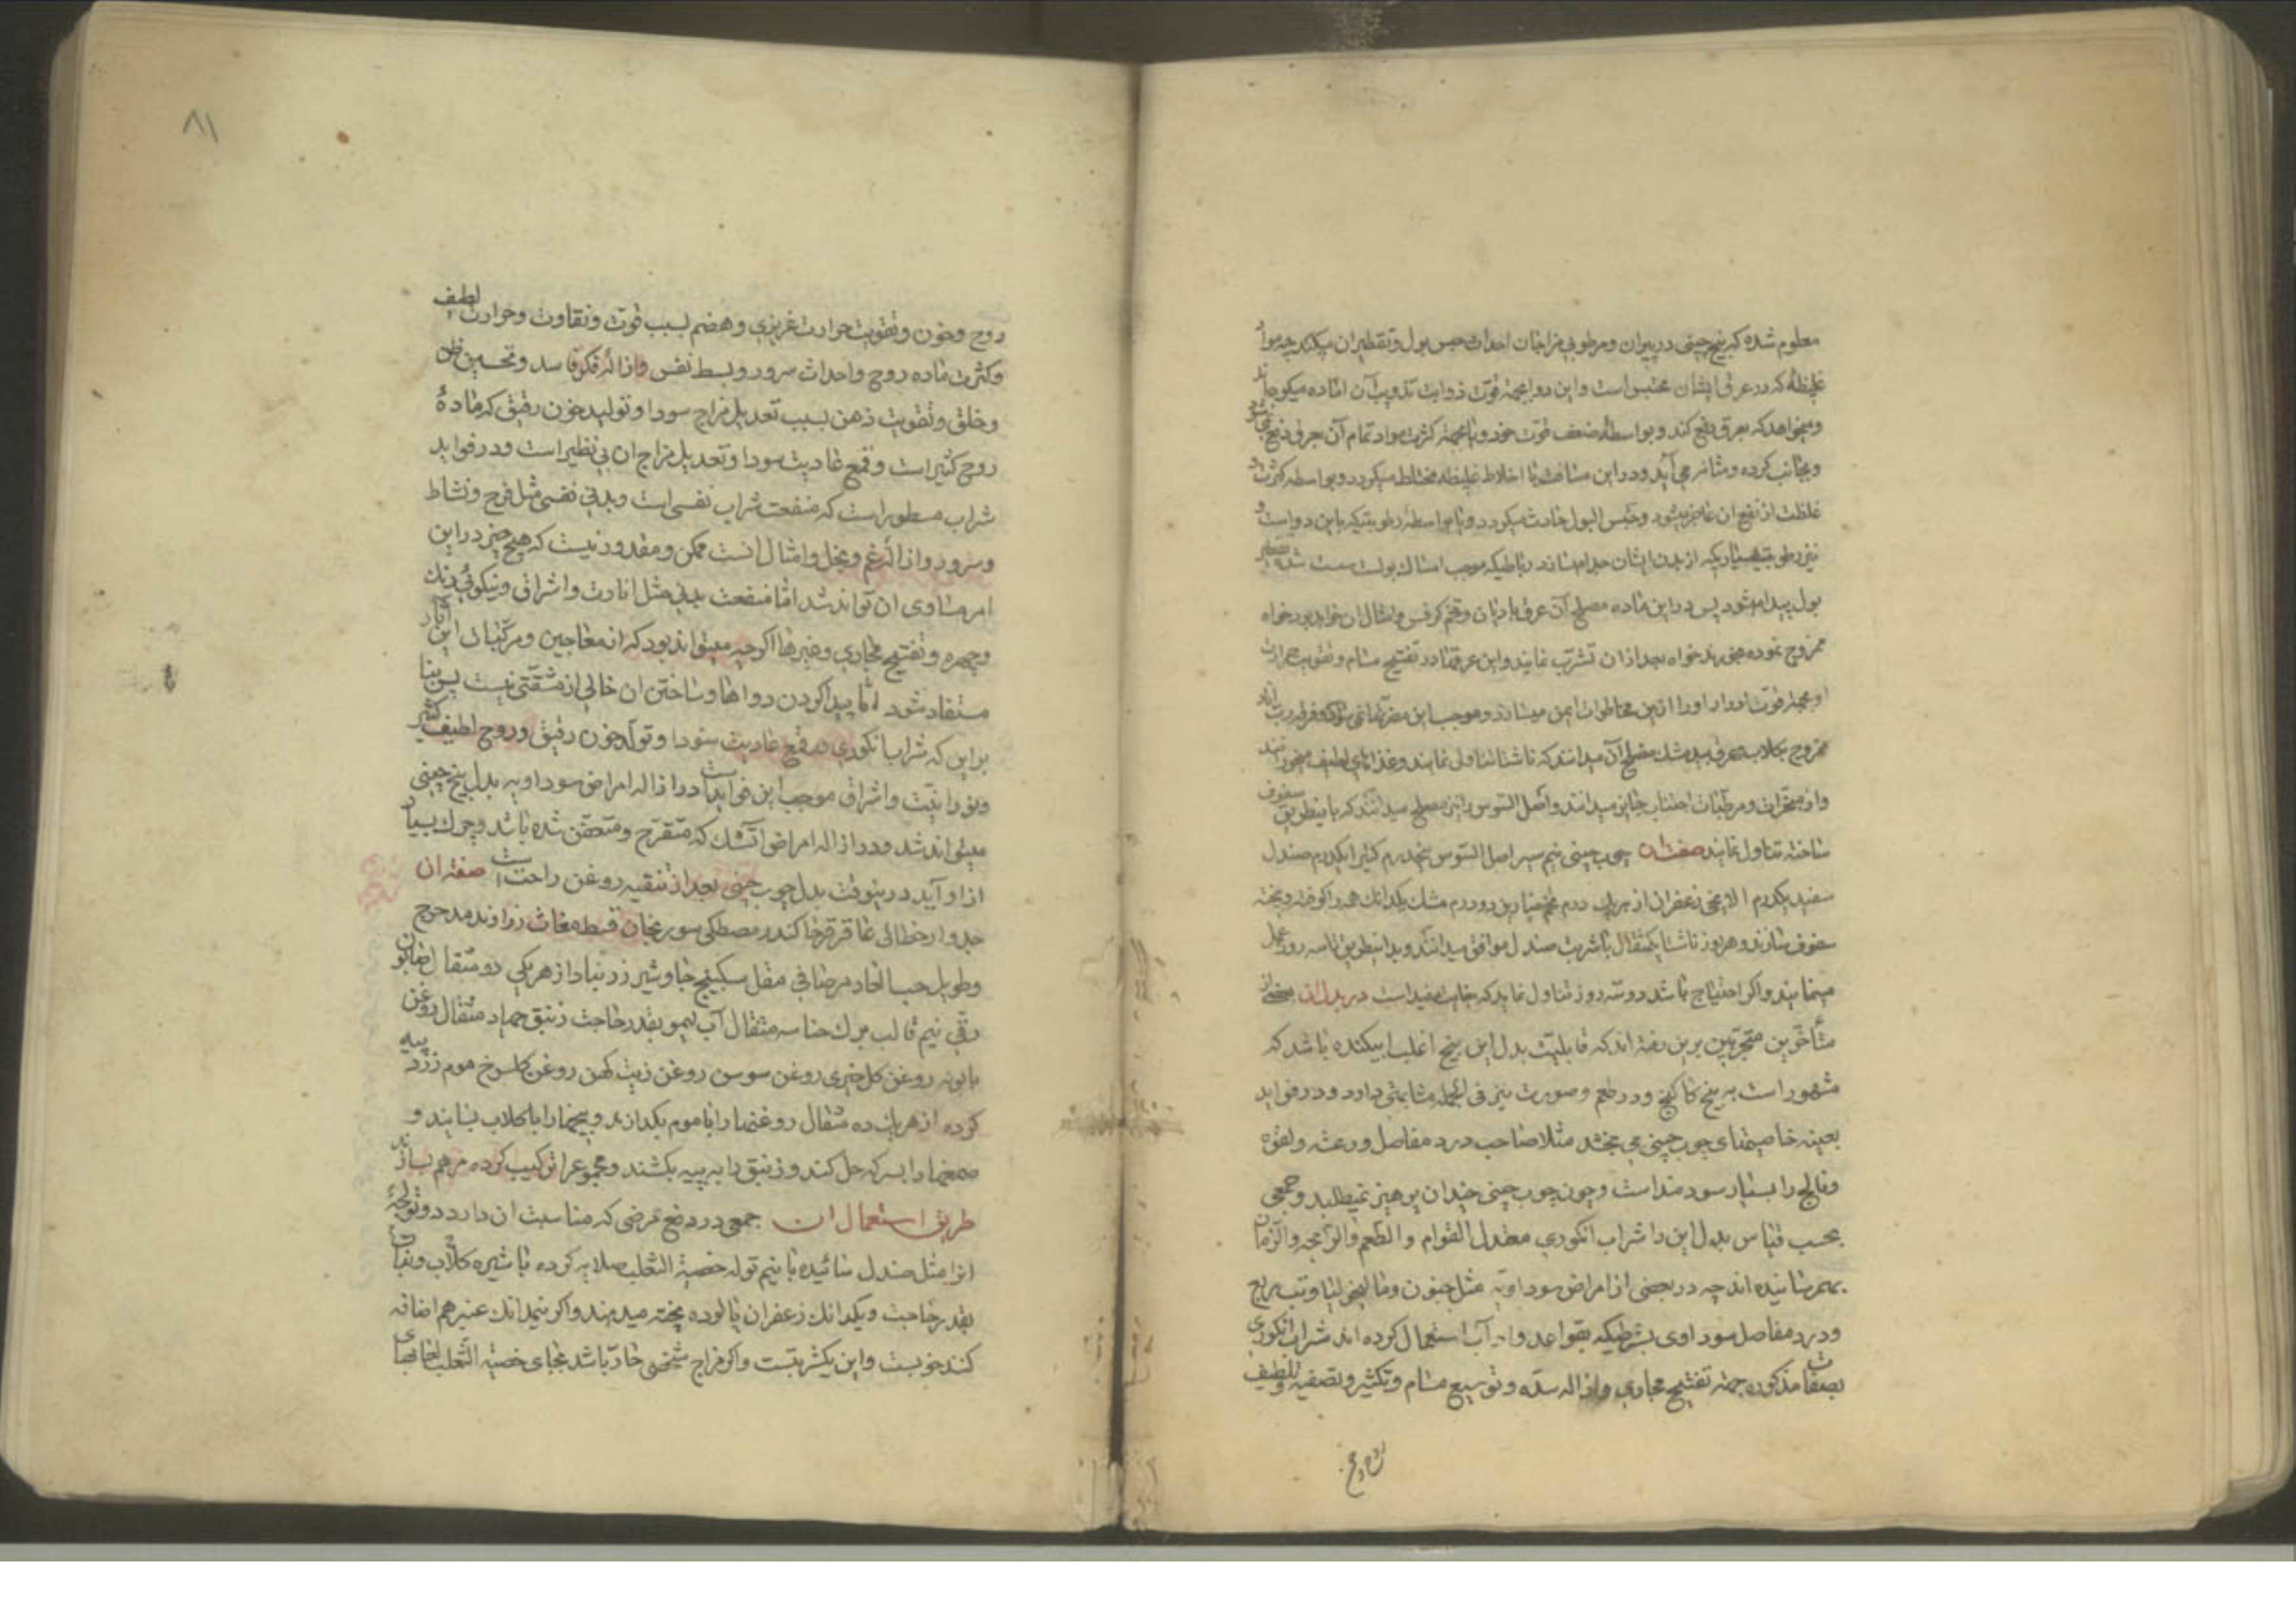 معلوم شده که بیخ چینی در پیران و مرطوبی مزاجان احداث حبس بول و تقطیر ان میکند چه مواد
غلیظهٔ که در عرق ایشان محتبس است و این دوا بجهة قوت ذوابیت تذویب آن ماده میکوجاند
و میخواهد که بعرق دفع کند و بواسطهٔ ضعف قوت خود و یا بجهة کثرت مواد تمام آن بعرق دفع نمیشود
و بجانب کرده و مثانه می آید و در این مسافت با اخلاط غلیظه مختلط میکردد و بواسطه کثرت و
غلظت از دفع ان عاجز میشود و حبس البول حادث میکردد و یا بواسطهٔ رطوبتیکه با این دواست و
نیز رطوبت بسیاریکه از بدن ایشان جدا میسازد رباطیکه موجب امساک بولست سست شده تقطیر
بول پیدا میشود پس در این ماده مصلح آن عرق بادیان و تخم کرفس و امثال ان خواهد بود خواه
ممزوج نموده خواه بعد از ان تشرب نمایند و این عرقها در تفتیح مسام و تقویت حرارت
او بجهة قوت ادرار او را ازین مخاطرات ایمن میسازد و موجب این مضرتها نمی شود و فرقه
ممزوج بکلاب و عرق بیدمشک مصلح آن میدانند که ناشتا تناول نمایند و غذاهای لطیف میخورند
و از مبخرات و مرطبات اجتناب میدانند و اصل السوس را نیز مصلح میدانند که باینطریق سفوف
ساخته تناول نمایند صفت ان چوب چینی نیم سیر اصل السوس پنجدرم کتیرا یکدرم صندل
سفید یکدرم الایچی زعفران از هریک درم تخم خیارین دو درم مشک یکدانک همه را کوفته و بیخته
سفوف سازند و هر روز ناشتا یکمثقال با شربت صندل موافق میدانند و بدینطریق تا سه روز عمل
مینمایند و اکر احتیاج باشد دو سه روز تناول نماید که بغایت مفید است در بدل ان بعضی از
متأخرین متجربین برین رفته اند که قابلیت بدل این بیخ اغلب ابیکنده باشد که
مشهور است به بیخ کاکنج و در طعم و صورت نیز فی الجمله مشابهتی دارد و در فواید
بعینه خاصیتهای چوب چینی می بخشد مثلا صاحب درد مفاصل و رعشه و لقوه
و فالج را بسیار سودمند است و چون چوب چینی چندان پرهیز نمیطلبد و جمعی
بحسب قیاس بدل این را شراب انکوری معتدل القوام و الطعم والرایحه والزمان
بهم رسانیده اند چه در بعضی از امراض سوداویه مثل جنون و مالیخولیا و تب ربع
و درد مفاصل سوداوی بشرطیکه بقواعد و آداب استعمال کرده اند شراب انکوری
بصفات مذکوره جهة تفتیح مجاری و ازاله سده و توسیع مسام و تکثیر و تصفیه و تلطیف
روح و خون
۸۱
روح و خون و تقویت حرارت غریزی و هضم بسبب قوت و نقاوت و حرارت لطیف
و کثرت ماده روح و احداث سرور و بسط نفس و ازالهٔ فکر فاسد و تحسین ظن
و خلق و تقویت ذهن بسبب تعدیل مزاج سودا و تولید خون رقیق که مادهٔ
روح کثیر است و قمع عادیت سودا و تعدیل مزاج ان بی نظیر است و در فواید
شراب مسطور است که منفعت شراب نفسی است و بدنی نفسی مثل فرح و نشاط
و سرور و ازالهٔ غم و بخل و امثال انست ممکن و مقدور نیست که هیچ چیز در این
امر مساوی ان تواند شد اما منفعت بدنی مثل انارت و اشراق و نیکوئی رنک
و چهره و تفتیح مجاری و غیرها اکرچه میتواند بود که از معاجین و مرکبات این آثار
مستفاد شود اما پیدا کردن دواها و ساختن ان خالی از مشقتی نیست پس بنا
براین که شراب انکوری در قمع عادیت سودا و تولد خون رقیق و روح لطیف کثیر
و نورانیت و اشراق موجب این فوایداست در ازاله امراض سوداویه بدل بیخ چینی
میتواند شد و در ازاله امراض آتشک که متقرح و متعفن شده باشد و چرک بسیار
از او آید درینوقت بدل چوب چینی بعد از تنقیه روغن راحت است صفت ان
جدوار خطائی عاقرقرحا کندر مصطکی سورنجان قسط مغاث زراوند مدحرج
و طویل حب الغار مرصافی مقل سکبینج جاوشیر زرنباد از هریکی دو مثقال
رقی نیم قالب برک حنا سه مثقال آب لیمو بقدر حاجت زیبق چهار مثقال روغن
بابونه روغن کل خیری روغن سوسن روغن زیت کهن روغن کلسرخ موم زرد پیه
کرده از هریک ده مثقال روغنها را با موم بکدازند و بیخها را با کلاب بسایند و
صمغها را بسرکه حل کنند و زیبق را به پیه بکشند و مجموع را ترکیب کرده مرهم سازند
طریق استعمال ان جمعی در دفع مرضی که مناسبت ان دارد دو تولچه
انرا مثل صندل سائیده با نیم توله خصیة الثعلب صلایه کرده با شیره کلاب و نبات
بقدر حاجت و یکدانک زعفران پالوده پخته میدهند و اکر نیمدانک عنبر هم اضافه
کنند خوبست و این یکشربتست و اکر مزاج شخصی حار باشد بجای خصیة الثعلب